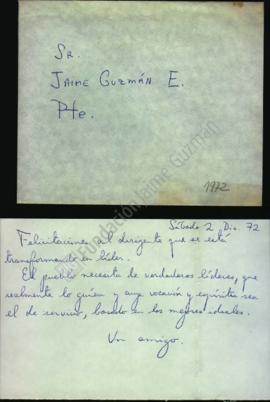 SR.
JAIME GUZMÁN E.
Pte.
1972
Fundación Jaime Guzmán
Sábado 2 Dic. 72
Felicitaciones al dirigente que se está
transformando en líder.
El pueblo necesita de verdaderos líderes, que
realmente lo guíen y cuya vocación y espíritu sea
el de servicio, basado en los mejores ideales.
Un amigo.